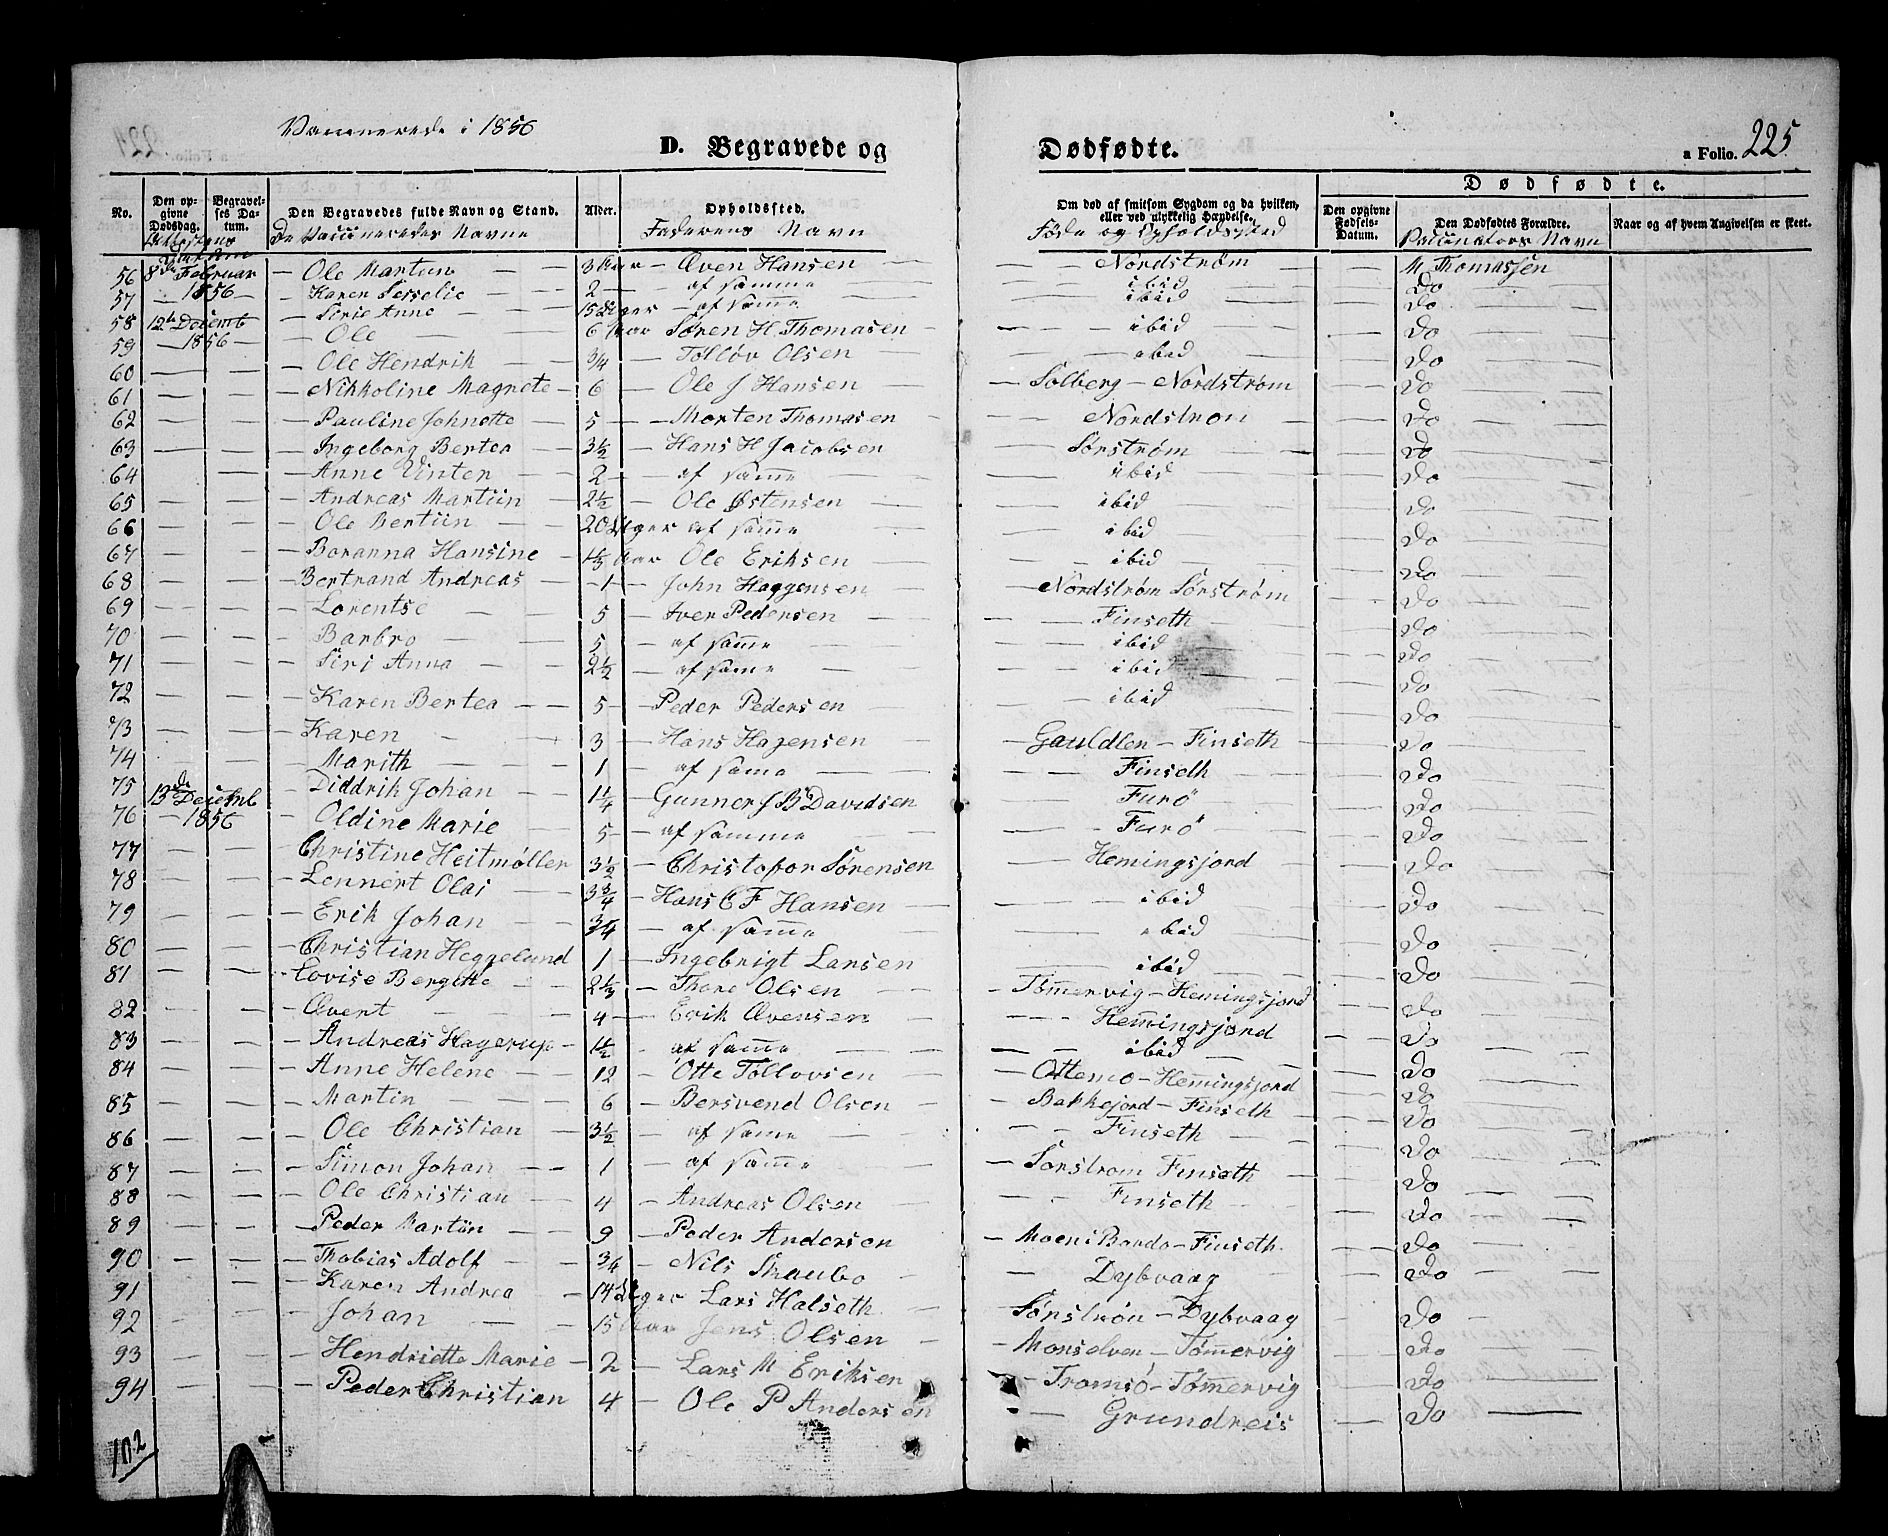 Vaccinerede i 1856
D. Begravede og Dødfødte.
a Folio. 225
No. Den opgivne Dødsdag. Begravelses Datum. Den Begravedes fulde Navn og Stand. Alder. Opholdssted. Om død af smitsom Sygdom og da hvilken, eller ved ulykkelig Hændelse. Dødfødte. Den opgivne Fødsels-Datum. Den Dødfødtes Forældre. Naar og af hvem Angivelsen er skeet.
Attestens Datum De Vaccineredes Navne Faderens Navn Føde og Opholdssted Vaccinators Navn
56 8de Februar — Ole Martin 3 Aar — Æven Hansen — Nordstrøm — M. Thomassen
57 — 1856 — Karen Sesselie — 2 — af samme — ibid — Do
58 12te Decemb — Sirie Anne — 15 Uger — af same — ibid — Do
59 — 1856 — Ole — 6 Aar Søren H. Thomasen — ibid — Do
60 — Ole Hendrik — 3/4 — Tolløv Olsen — ibid — Do
61 — Nikkoline Magrete — 6 — Ole J Hansen — Solberg — Nordstrøm — Do
62 — Pauline Johnette — 5 — Morten Thomasen — Nordstrøm — Do
63 — Ingeborg Bertea — 3½ — Hans H Jacobsen — Sørstrøm — Do
64 — Anne Vinter — 2 — af samme — ibid — Do
65 — Andreas Martiin — 2½ — Ole Østensen — ibid — Do
66 — Ole Bertiin — 20 Uger af samme — ibid — Do
67 — Boranna Hansine — 1½ Aar Ole Eriksen — ibid — Do
68 — Bertrand Andreas — 1 — John Haggensen — Nordstrøm Sørstrøm — Do
69 — Lorentse — 5 — Iver Pedersen — Finseth — Do
70 — Barbro — 5 — af samme — ibid — Do
71 — Siri Anna — 2½ — af samme — ibid — Do
72 — Karen Bertea — 5 — Peder Pedersen — ibid — Do
73 — Karen — 3 — Hans Hagensen — Gauldlen — Finseth — Do
74 — Marith — 1 — af same — Finseth — Do
75 13de Decemb — Diddrik Johan — 1¼ — Gunner J B Davidsen — Furø — Do
76 — 1856 — Oldine Marie — 5 — af samme — Furø — Do
77 — Christine Heitmøller 3½ — Christofor Sørensen — Hemingsjord — Do
78 — Lennert Olai — 3¾ — Hans C F Hansen — ibid — Do
79 — Erik Johan — 3/4 — af samme — ibid — Do
80 — Christian Heggelund 1 — Ingebrigt Larsen — ibid — Do
81 — Lovise Bergitte — 2⅓ — Thore Olsen — Tømmervig — Hemingsjord — Do
82 — Ævert — 4 — Erik Ævensen — Hemingsjord — Do
83 — Andreas Hagerup — 1½ — af samme — ibid — Do
84 — Anne Helene — 12 — Otte Tollovsen — Ottemo — Hemingsjord — Do
85 — Martin — 6 — Bersvend Olsen — Bakkejord — Finseth — Do
86 — Ole Christian — 3½ — af same — Finseth — Do
87 — Simon Johan — 1 — af samme — Sørstrøm Finseth — Do
88 — Ole Christian — 4 — Andreas Olsen — Finseth — Do
89 — Peder Martin — 9 — Peder Andersen — Moen i Bardo — Finseth — Do
90 — Thobias Adolf — 3/4 — Nils Straubo — Dybvaag — Do
91 — Karen Andrea — 14 Uger Lars Halseth — Sørstrøm — Dybvaag — Do
92 — Johan — 15 Aar Jens Olsen — Monselven — Tømmervig — Do
93 — Hendriette Marie — 2 — Lars M Eriksen — Tromsø — Tømmervig — Do
94 — Peder Christian 4 — Ole P Andersen — Grundreis — Do
102